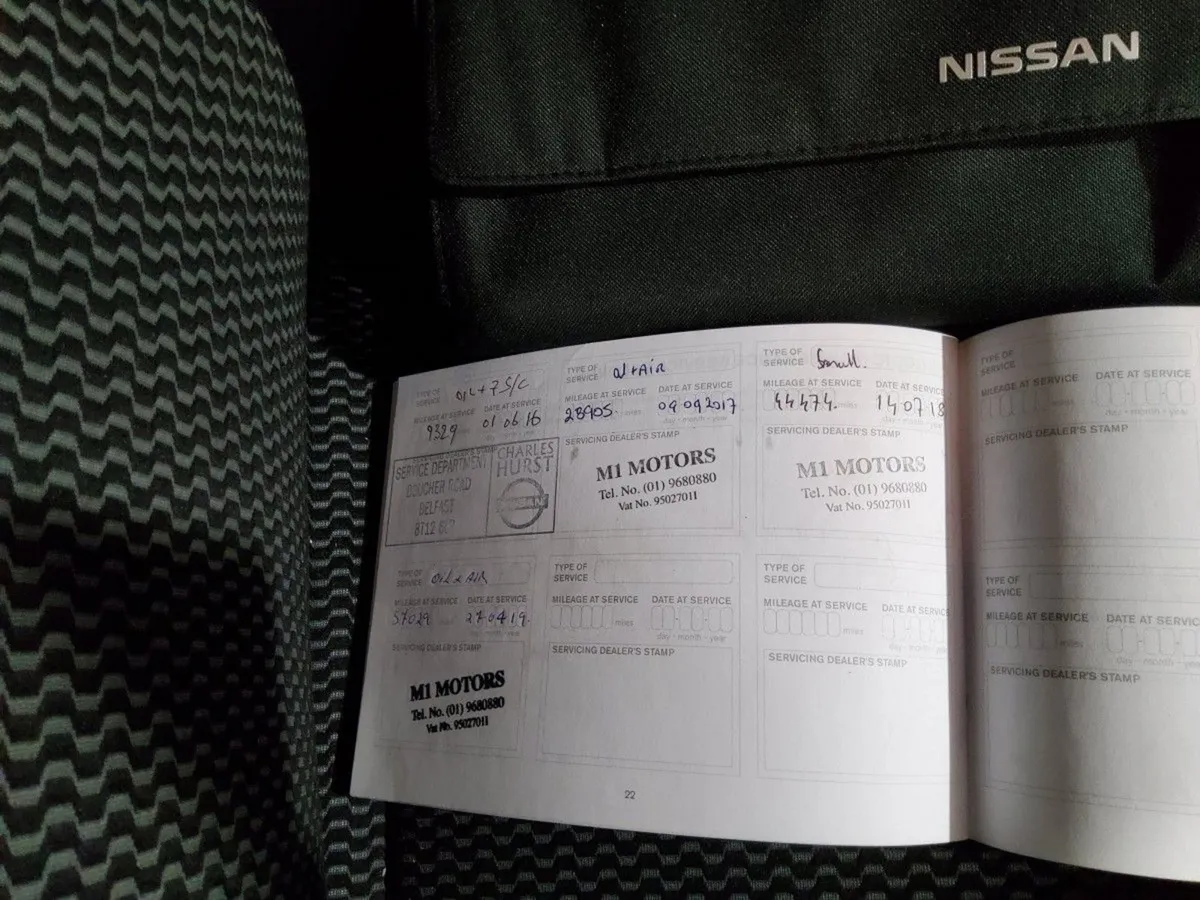 NISSAN
TYPE OF SERVICE OIL + 7 S/C
MILEAGE AT SERVICE DATE AT SERVICE
9329 01 06 16
SERVICING DEALER'S STAMP
SERVICE DEPARTMENT
BOUCHER ROAD
BELFAST
BT12
CHARLES
HURST
NISSAN
TYPE OF SERVICE Oil + Air
MILEAGE AT SERVICE DATE AT SERVICE
28905 miles 09 09 2017
day - month - year
SERVICING DEALER'S STAMP
M1 MOTORS
Tel. No. (01) 9680880
Vat No. 95027011
TYPE OF SERVICE Small.
MILEAGE AT SERVICE DATE AT SERVICE
44474. miles 14 07 18
day - month - year
SERVICING DEALER'S STAMP
M1 MOTORS
Tel. No. (01) 9680880
Vat No. 95027011
TYPE OF SERVICE OIL & AIR
MILEAGE AT SERVICE DATE AT SERVICE
57029 27 04 19.
day - month - year
SERVICING DEALER'S STAMP
M1 MOTORS
Tel. No. (01) 9680880
Vat No. 95027011
TYPE OF SERVICE
MILEAGE AT SERVICE DATE AT SERVICE
miles
day - month - year
SERVICING DEALER'S STAMP
TYPE OF SERVICE
MILEAGE AT SERVICE DATE AT SERVICE
miles
day - month - year
SERVICING DEALER'S STAMP
22
TYPE OF SERVICE
MILEAGE AT SERVICE DATE AT SERVICE
miles
day - month - year
SERVICING DEALER'S STAMP
TYPE OF SERVICE
MILEAGE AT SERVICE DATE AT SERVICE
miles
day - month - year
SERVICING DEALER'S STAMP